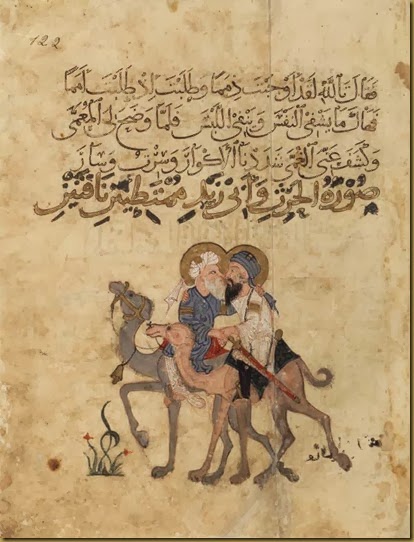 122
فقال تالله لقد اوجبت ذمما وطلبت اذ طلبت امما
فهات ما يشفي النفس وينفي اللبس فلما وضح لي المعمى
وكشف عني الغمى شددنا الاكوار وسرت وسار
صورة الحرث وابي زيد ممتطيين ناقتين